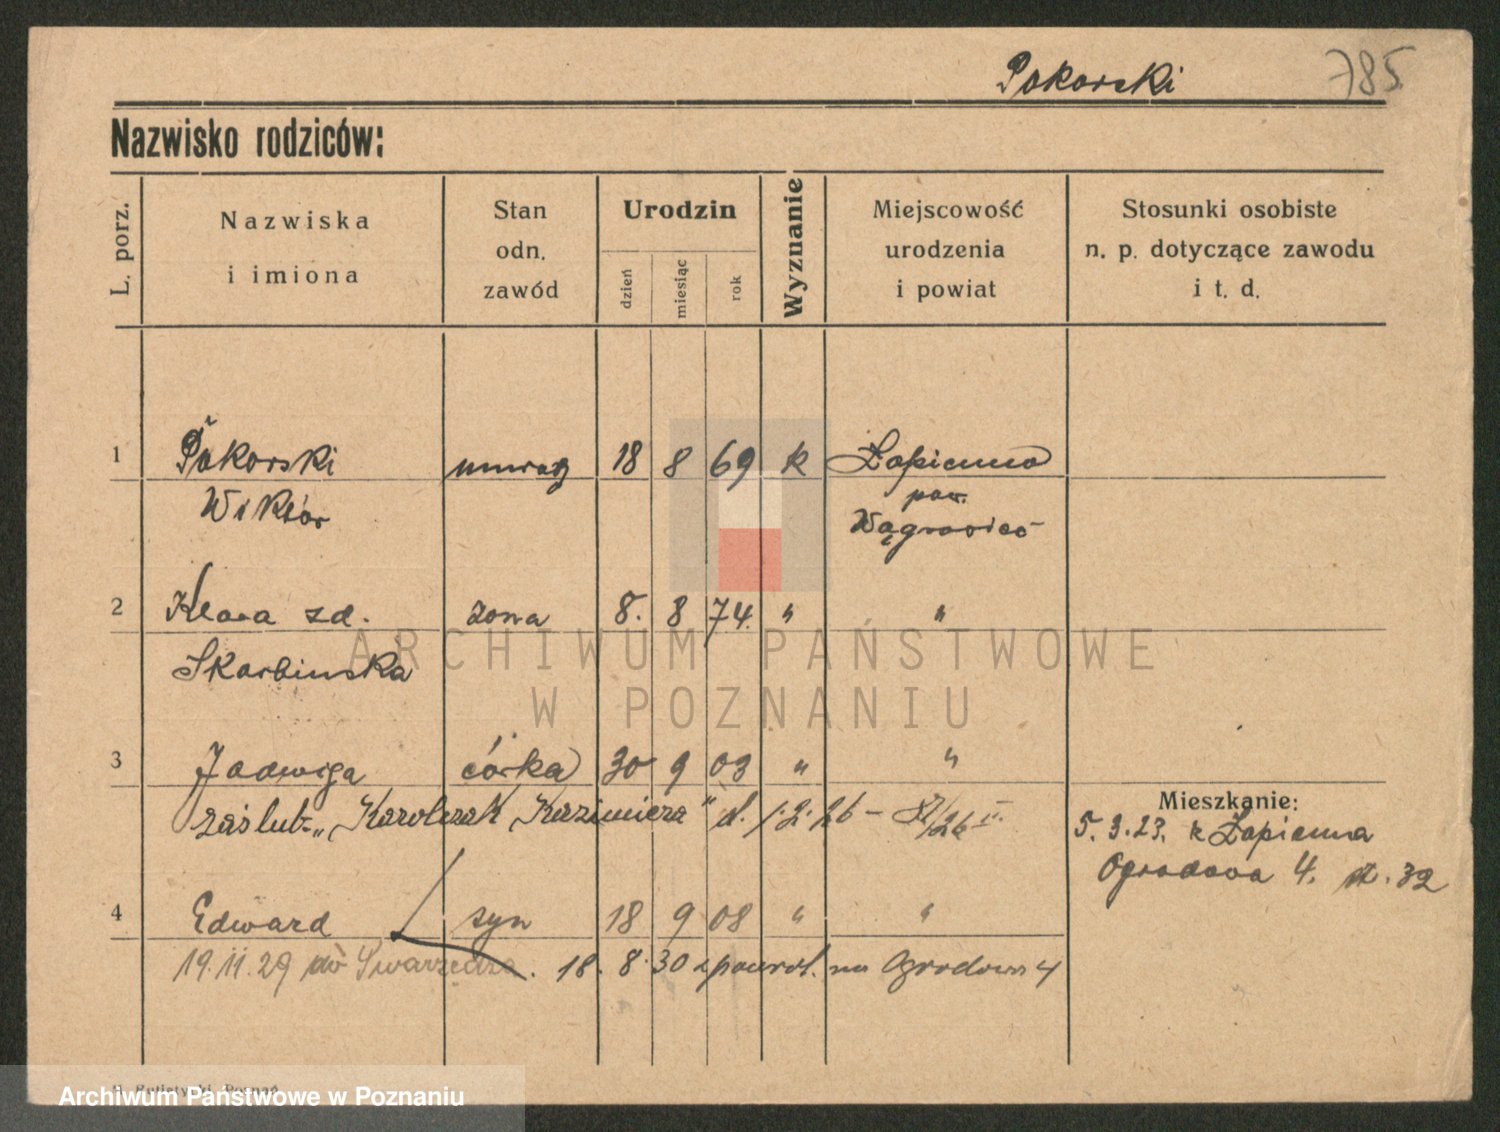 Pokorski 785
Nazwisko rodziców:
L. porz.
Nazwiska
i imiona
Stan
odn.
zawód
Urodzin
dzień
miesiąc
rok
Wyznanie
Miejscowość
urodzenia
i powiat
Stosunki osobiste
n. p. dotyczące zawodu
i t. d.
1 Pokorski 18 8 69 k Łopienno
Wiktor pow.
Wągrowiec
2 Klara zd. żona 8. 8 74. " "
Skorbinska
ARCHIWUM PAŃSTWOWE
W POZNANIU
3 Jadwiga córka 30 9 03 " "
zaślub. „Karolczak Kazimierz" d. 1.2.26 –
Mieszkanie:
5. 3. 23. z Łopienna
Ogrodowa 4. 32
4 Edward syn 18 9 08 " "
19.11.29 do Swarzędza. 18. 8. 30 z powrot. na Ogrodowa 4
Poznań
Archiwum Państwowe w Poznaniu